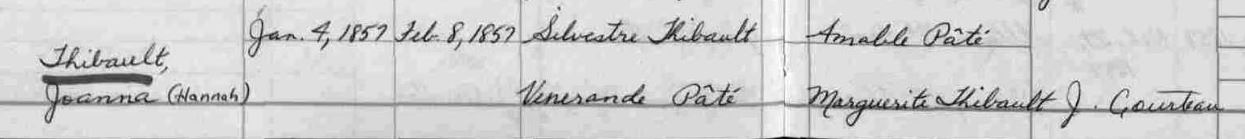 Jan. 4, 1857 Feb. 8, 1857 Silvestre Thibault Amable Pâté
Thibault,
Joanna (Hannah) Venerande Pâté Marguerite Thibault J. Courteau